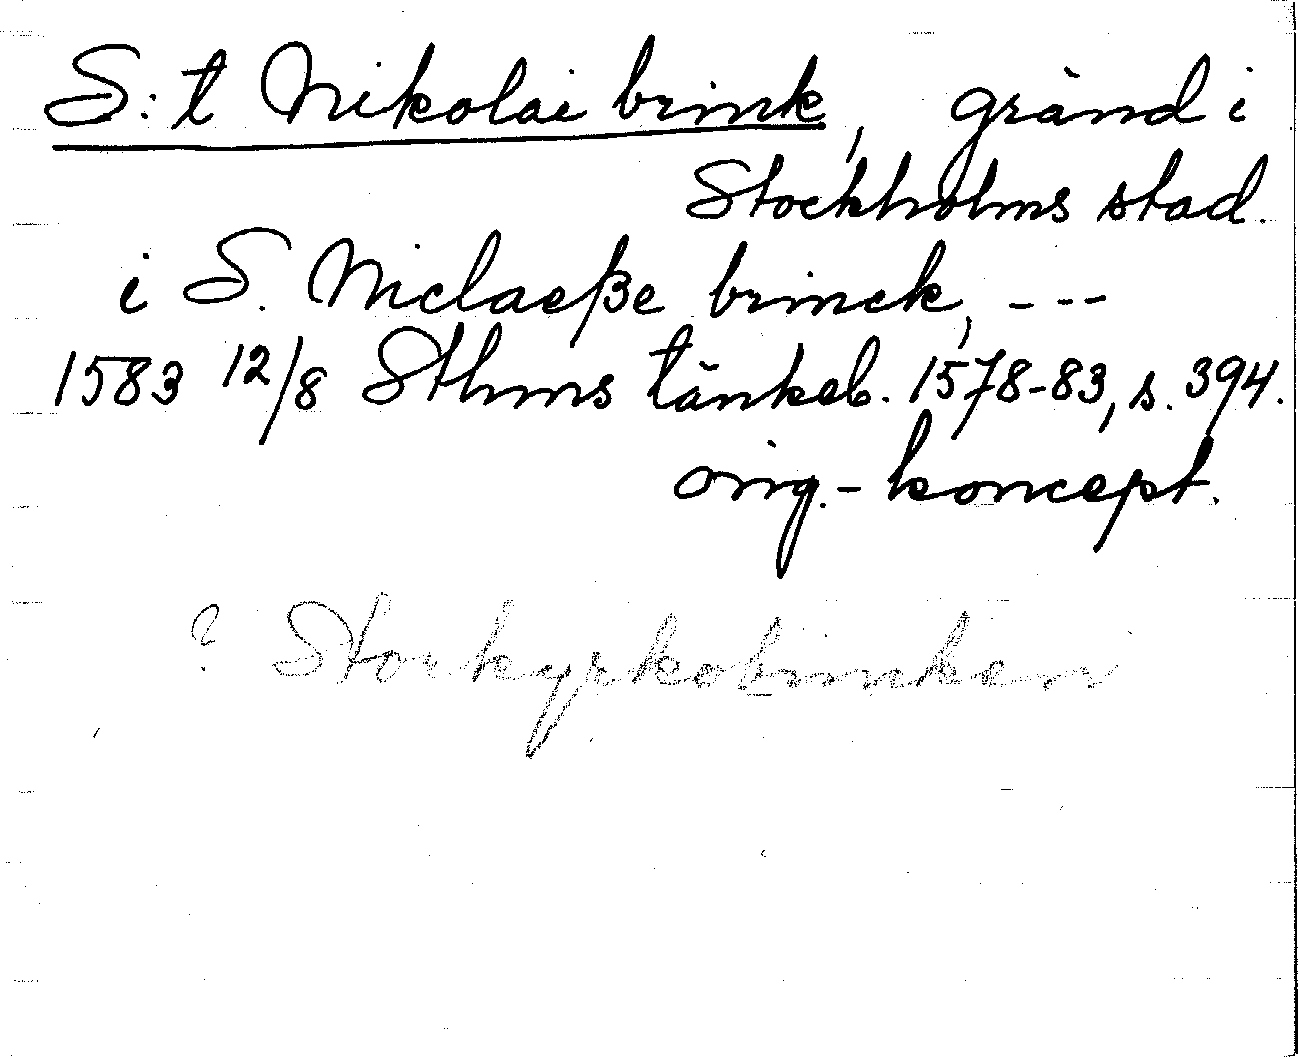 S:t Nikolai brink, gränd i
Stockholms stad.
i S. Niclaeße brinck, ---
1583 12/8 Sthms tänkeb. 1578-83, s. 394.
orig.-koncept.
? Storkyrkobrinken